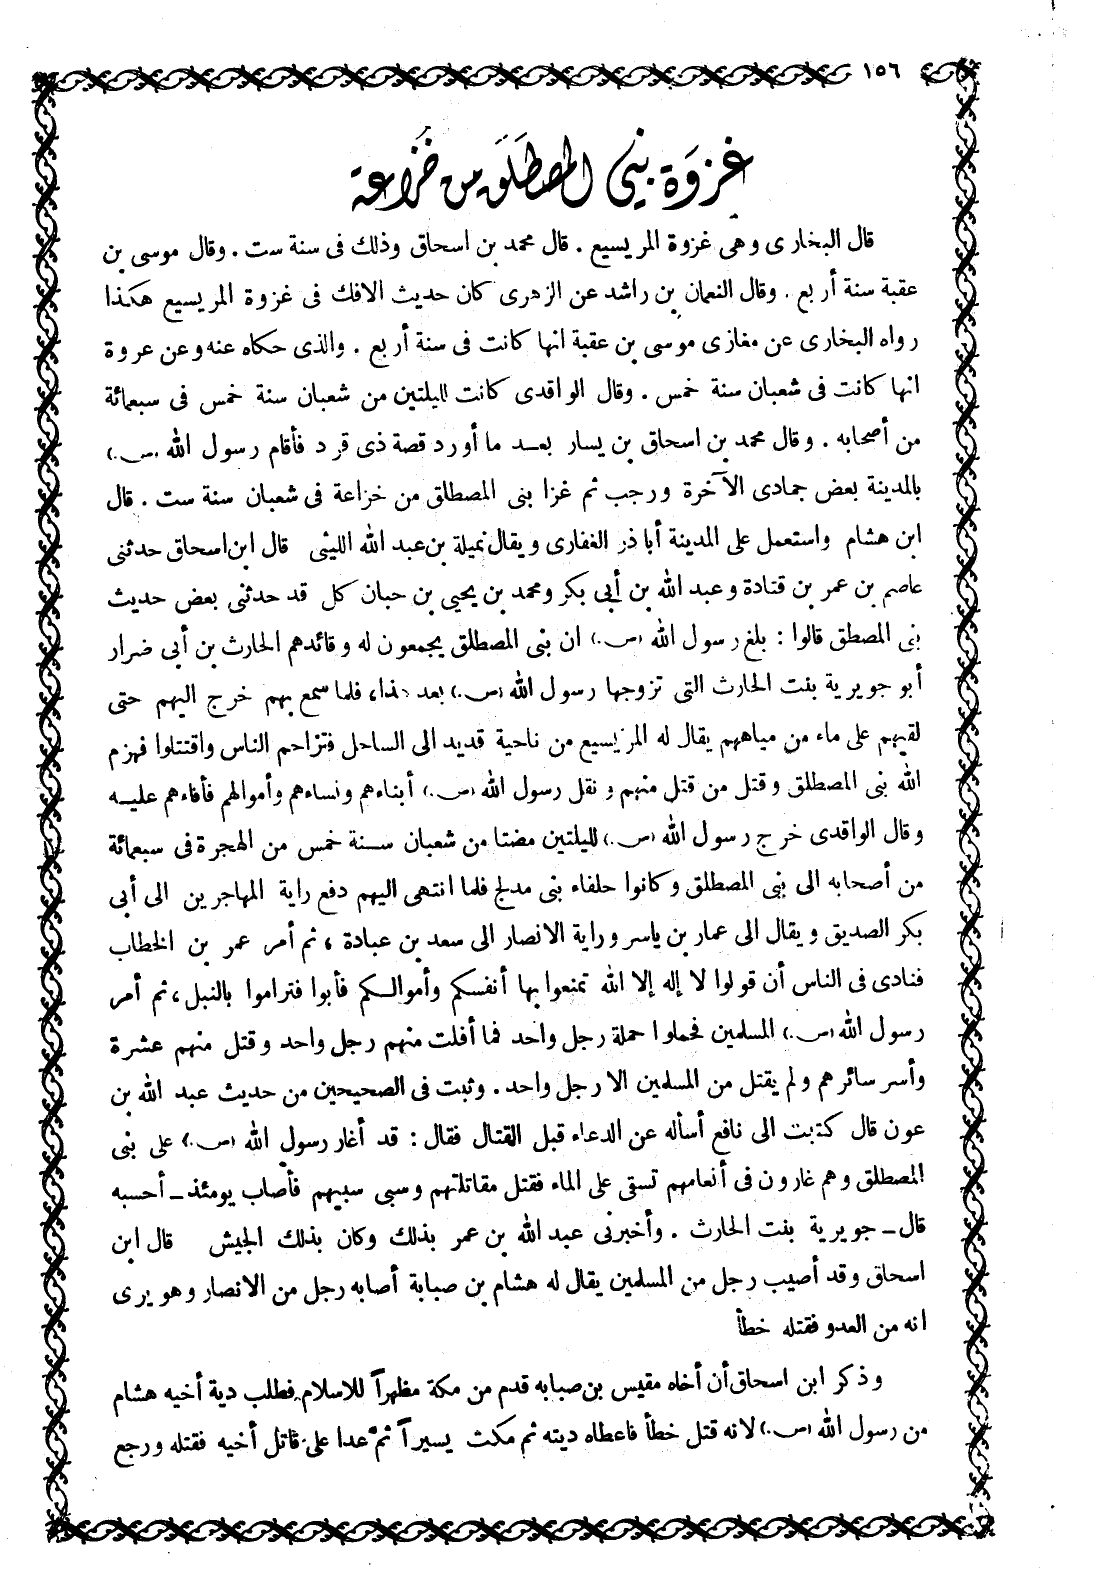 ١٥٦
غزوة بني المصطلق من خزاعة
قال البخارى وهى غزوة المريسيع . قال محمد بن اسحاق وذلك فى سنة ست . وقال موسى بن
عقبة سنة أربع . وقال النعمان بن راشد عن الزهرى كان حديث الافك فى غزوة المريسيع هكذا
رواه البخارى عن مغازى موسى بن عقبة انها كانت فى سنة أربع . والذى حكاه عنه وعن عروة
انها كانت فى شعبان سنة خمس . وقال الواقدى كانت لليلتين من شعبان سنة خمس فى سبعمائة
من أصحابه . وقال محمد بن اسحاق بن يسار بعد ما أورد قصة ذى قرد فأقام رسول الله (س.)
بالمدينة بعض جمادى الآخرة ورجب ثم غزا بنى المصطلق من خزاعة فى شعبان سنة ست . قال
ابن هشام واستعمل على المدينة أبا ذر الغفارى ويقال نميلة بن عبد الله الليثى قال ابن اسحاق حدثنى
عاصم بن عمر بن قتادة وعبد الله بن أبى بكر ومحمد بن يحيى بن حبان كل قد حدثنى بعض حديث
بنى المصطق قالوا : بلغ رسول الله (س.) ان بنى المصطلق يجمعون له وقائدهم الحارث بن أبى ضرار
أبو جويرية بنت الحارث التى تزوجها رسول الله (س.) بعد هذا، فلما سمع بهم خرج اليهم حتى
لقيهم على ماء من مياههم يقال له المريسيع من ناحية قديد الى الساحل فتزاحم الناس واقتتلوا فهزم
الله بنى المصطلق وقتل من قتل منهم ونفل رسول الله (س.) أبناءهم ونساءهم وأموالهم فأفاءهم عليه
وقال الواقدى خرج رسول الله (س.) لليلتين مضتا من شعبان سنة خمس من الهجرة فى سبعمائة
من أصحابه الى بنى المصطلق وكانوا حلفاء بنى مدلج فلما انتهى اليهم دفع راية المهاجرين الى أبى
بكر الصديق ويقال الى عمار بن ياسر وراية الانصار الى سعد بن عبادة ، ثم أمر عمر بن الخطاب
فنادى فى الناس أن قولوا لا إله إلا الله تمنعوا بها أنفسكم وأموالكم فأبوا فتراموا بالنبل ، ثم أمر
رسول الله (س.) المسلمين فحملوا حملة رجل واحد فما أفلت منهم رجل واحد وقتل منهم عشرة
وأسر سائرهم ولم يقتل من المسلمين الا رجل واحد . وثبت فى الصحيحين من حديث عبد الله بن
عون قال كتبت الى نافع أسأله عن الدعاء قبل القتال فقال : قد أغار رسول الله (س.) على بنى
المصطلق وهم غارون فى أنعامهم تسقى على الماء فقتل مقاتلتهم وسبى سبيهم فأصاب يومئذ ـ أحسبه
قال ـ جويرية بنت الحارث . وأخبرنى عبد الله بن عمر بذلك وكان بذلك الجيش قال ابن
اسحاق وقد أصيب رجل من المسلمين يقال له هشام بن صبابة أصابه رجل من الانصار وهو يرى
انه من العدو فقتله خطأ
وذكر ابن اسحاق أن أخاه مقيس بن صبابه قدم من مكة مظهراً للاسلام فطلب دية أخيه هشام
من رسول الله (س.) لانه قتل خطأ فاعطاه ديته ثم مكث يسيراً ثم عدا على قاتل أخيه فقتله ورجع